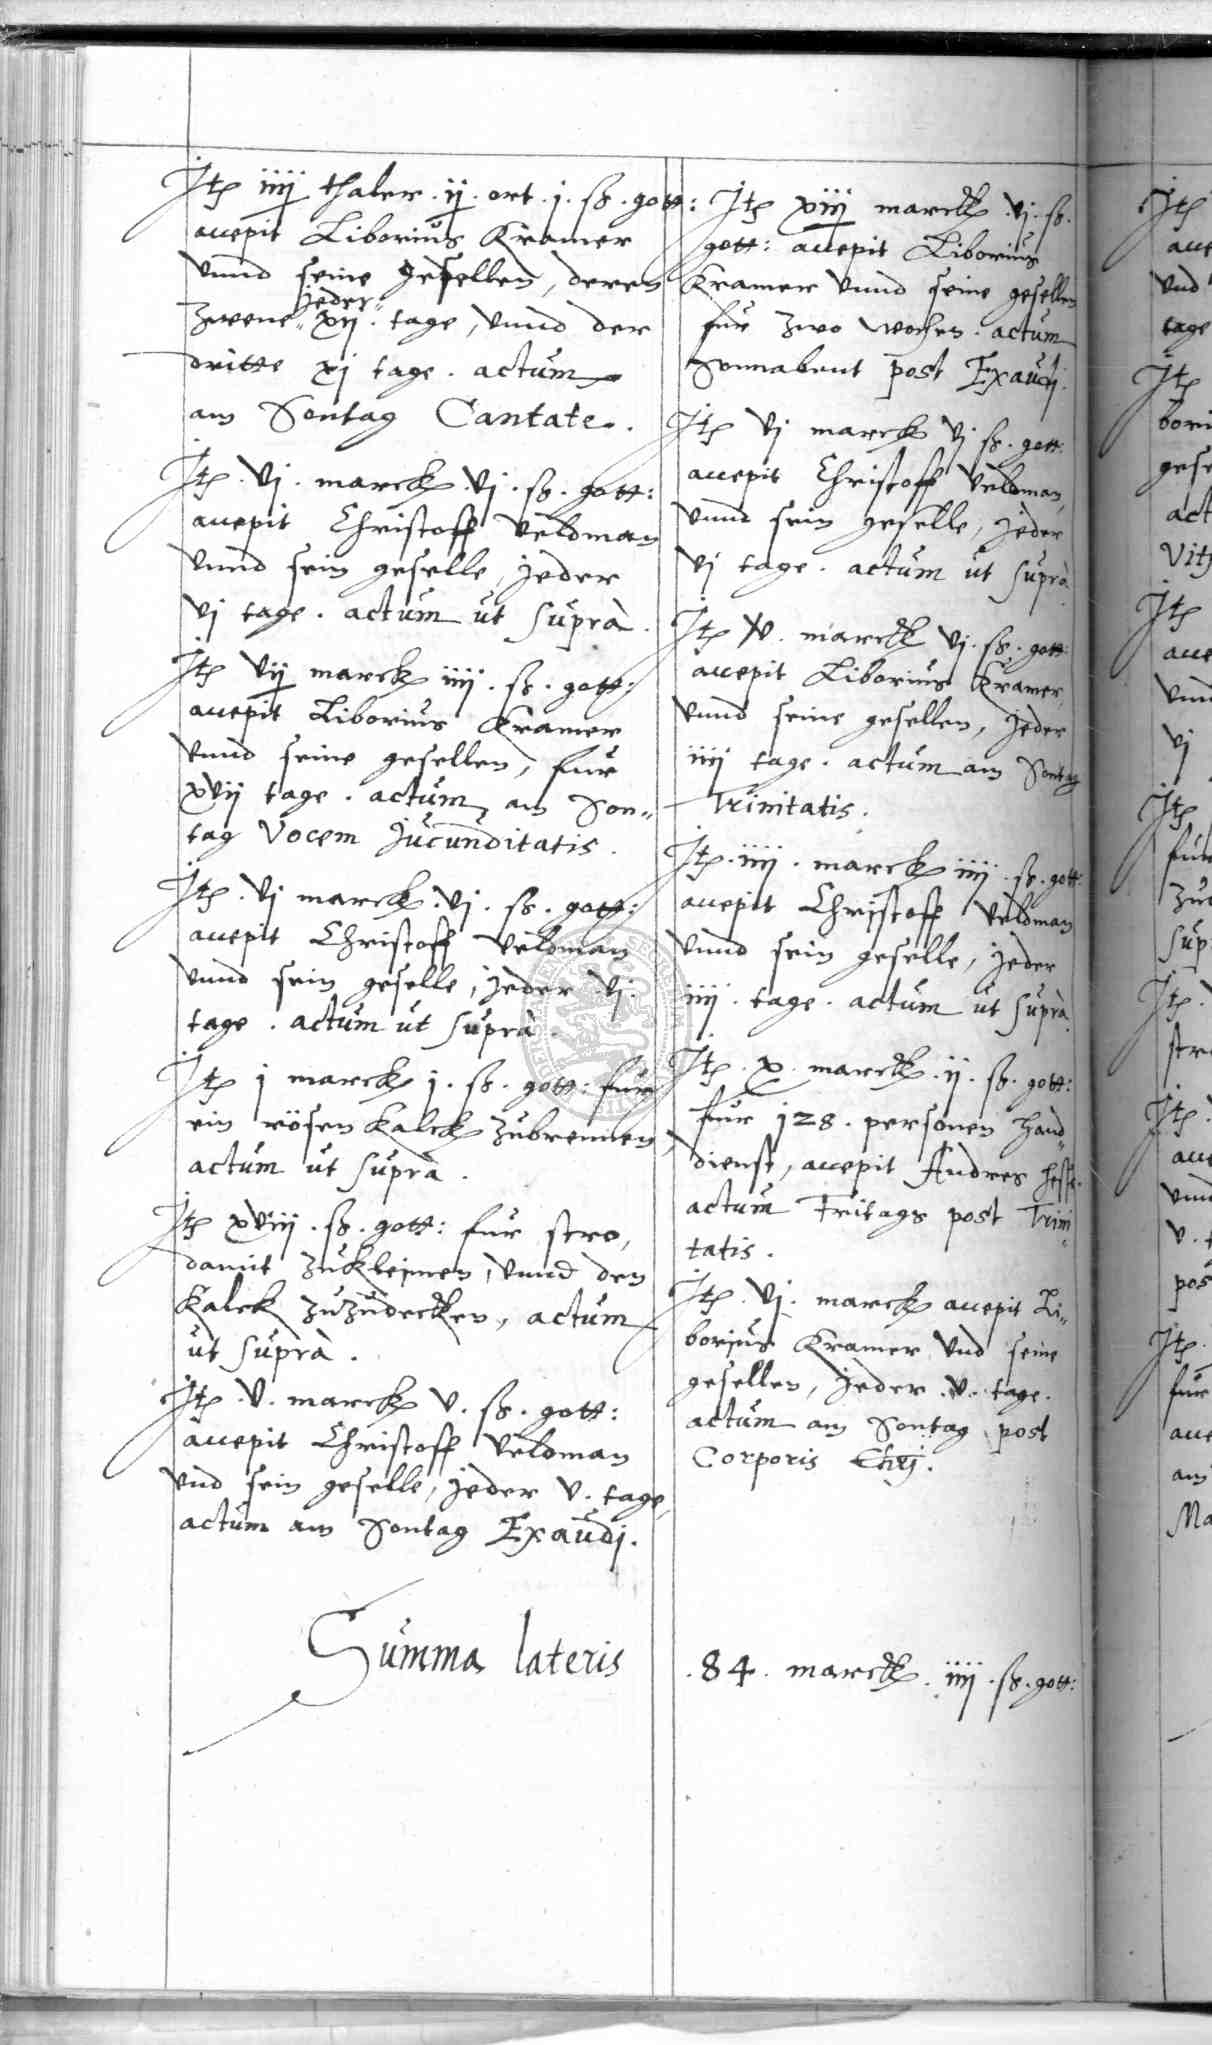 Itē iiij thaler . ij . ort . j . sß . gott:
accepit Liborius Kramer
vnnd seine gesellen, deren
jeder
zwene xij . tage, vnnd der
dritte xj tage . actum
am Sontag Cantate .
Itē . vj . marck . vj . sß . gott:
accepit Christoff Veldman
vnnd sein geselle, jeder
vj tage . actum ut suprà .
Itē vij marck iiij . sß . gott:
accepit Liborius Kramer
vnnd seine gesellen, fur
xvij tage . actum am Son„
tag Vocem Jucunditatis .
Itē . vj marck . vj . sß . gott:
accepit Christoff Veldman
vnnd sein geselle, jeder vj .
tage . actum ut suprà .
Itē j marck j . sß . gott: fur
ein rösen Kalck zubrennen,
actum ut suprà .
Itē xviij . sß . gott: fur stro,
damit zukleimen, vnnd den
Kalck zuzudecken, actum
ut suprà .
Itē . v . marck v . sß . gott:
accepit Christoff Veldman
vnd sein geselle, jeder v . tage,
actum am Sontag Exaudj .
Itē xiij marck . vj . sß .
gott: accepit Liborius
Kramer vnnd seine gesellen
fur zwo wochen . actum
Sonnabent post Exaudj .
Itē vj marck vj sß . gott:
accepit Christoff Veldman,
vnnd sein geselle, jeder
vj tage . actum ut suprà .
Itē v . marck vj . sß . gott:
accepit Liborius Kramer,
vnnd seine gesellen, jeder
iiij tage . actum am Sontag
Trinitatis .
Itē . iiij . marck iiij . sß . gott:
accepit Christoff Veldman
vnnd sein geselle, jeder
iiij . tage . actum ut suprà .
Itē . x . marck . ij . sß . gott:
fur 128 . personen hand„
dienst, accepit Andres Hesse .
actum Fritags post Trini„
tatis .
Itē . vj . marck accepit Li„
borius Kramer vnd seine
gesellen, jeder . v . tage .
actum am Sontag post
Corporis Chrj .
Summa lateris
. 84 . marck . iiij . sß . gott:
Itē
vnd
tage
Itē
act
Itē
vj
Itē
Itē
Itē
v .
Itē
fur
am
Ma